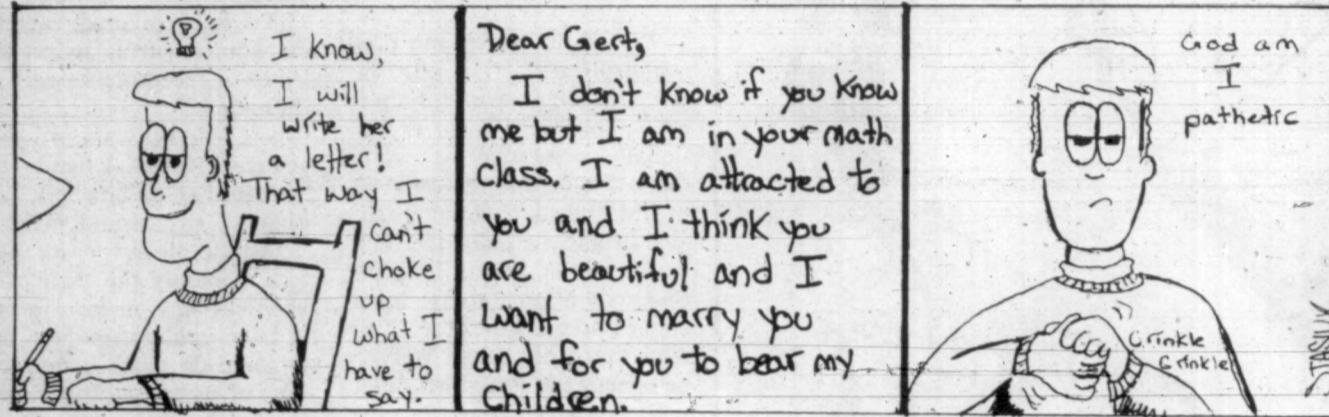 I know,
I will
write her
a letter!
That way I
can't
choke
up
what I
have to
say.
Dear Gert,
I don't know if you know
me but I am in your math
class. I am attracted to
you and I think you
are beautiful and I
want to marry you
and for you to bear my
Children.
God am
I
pathetic
Crinkle
Crinkle
STASIUK